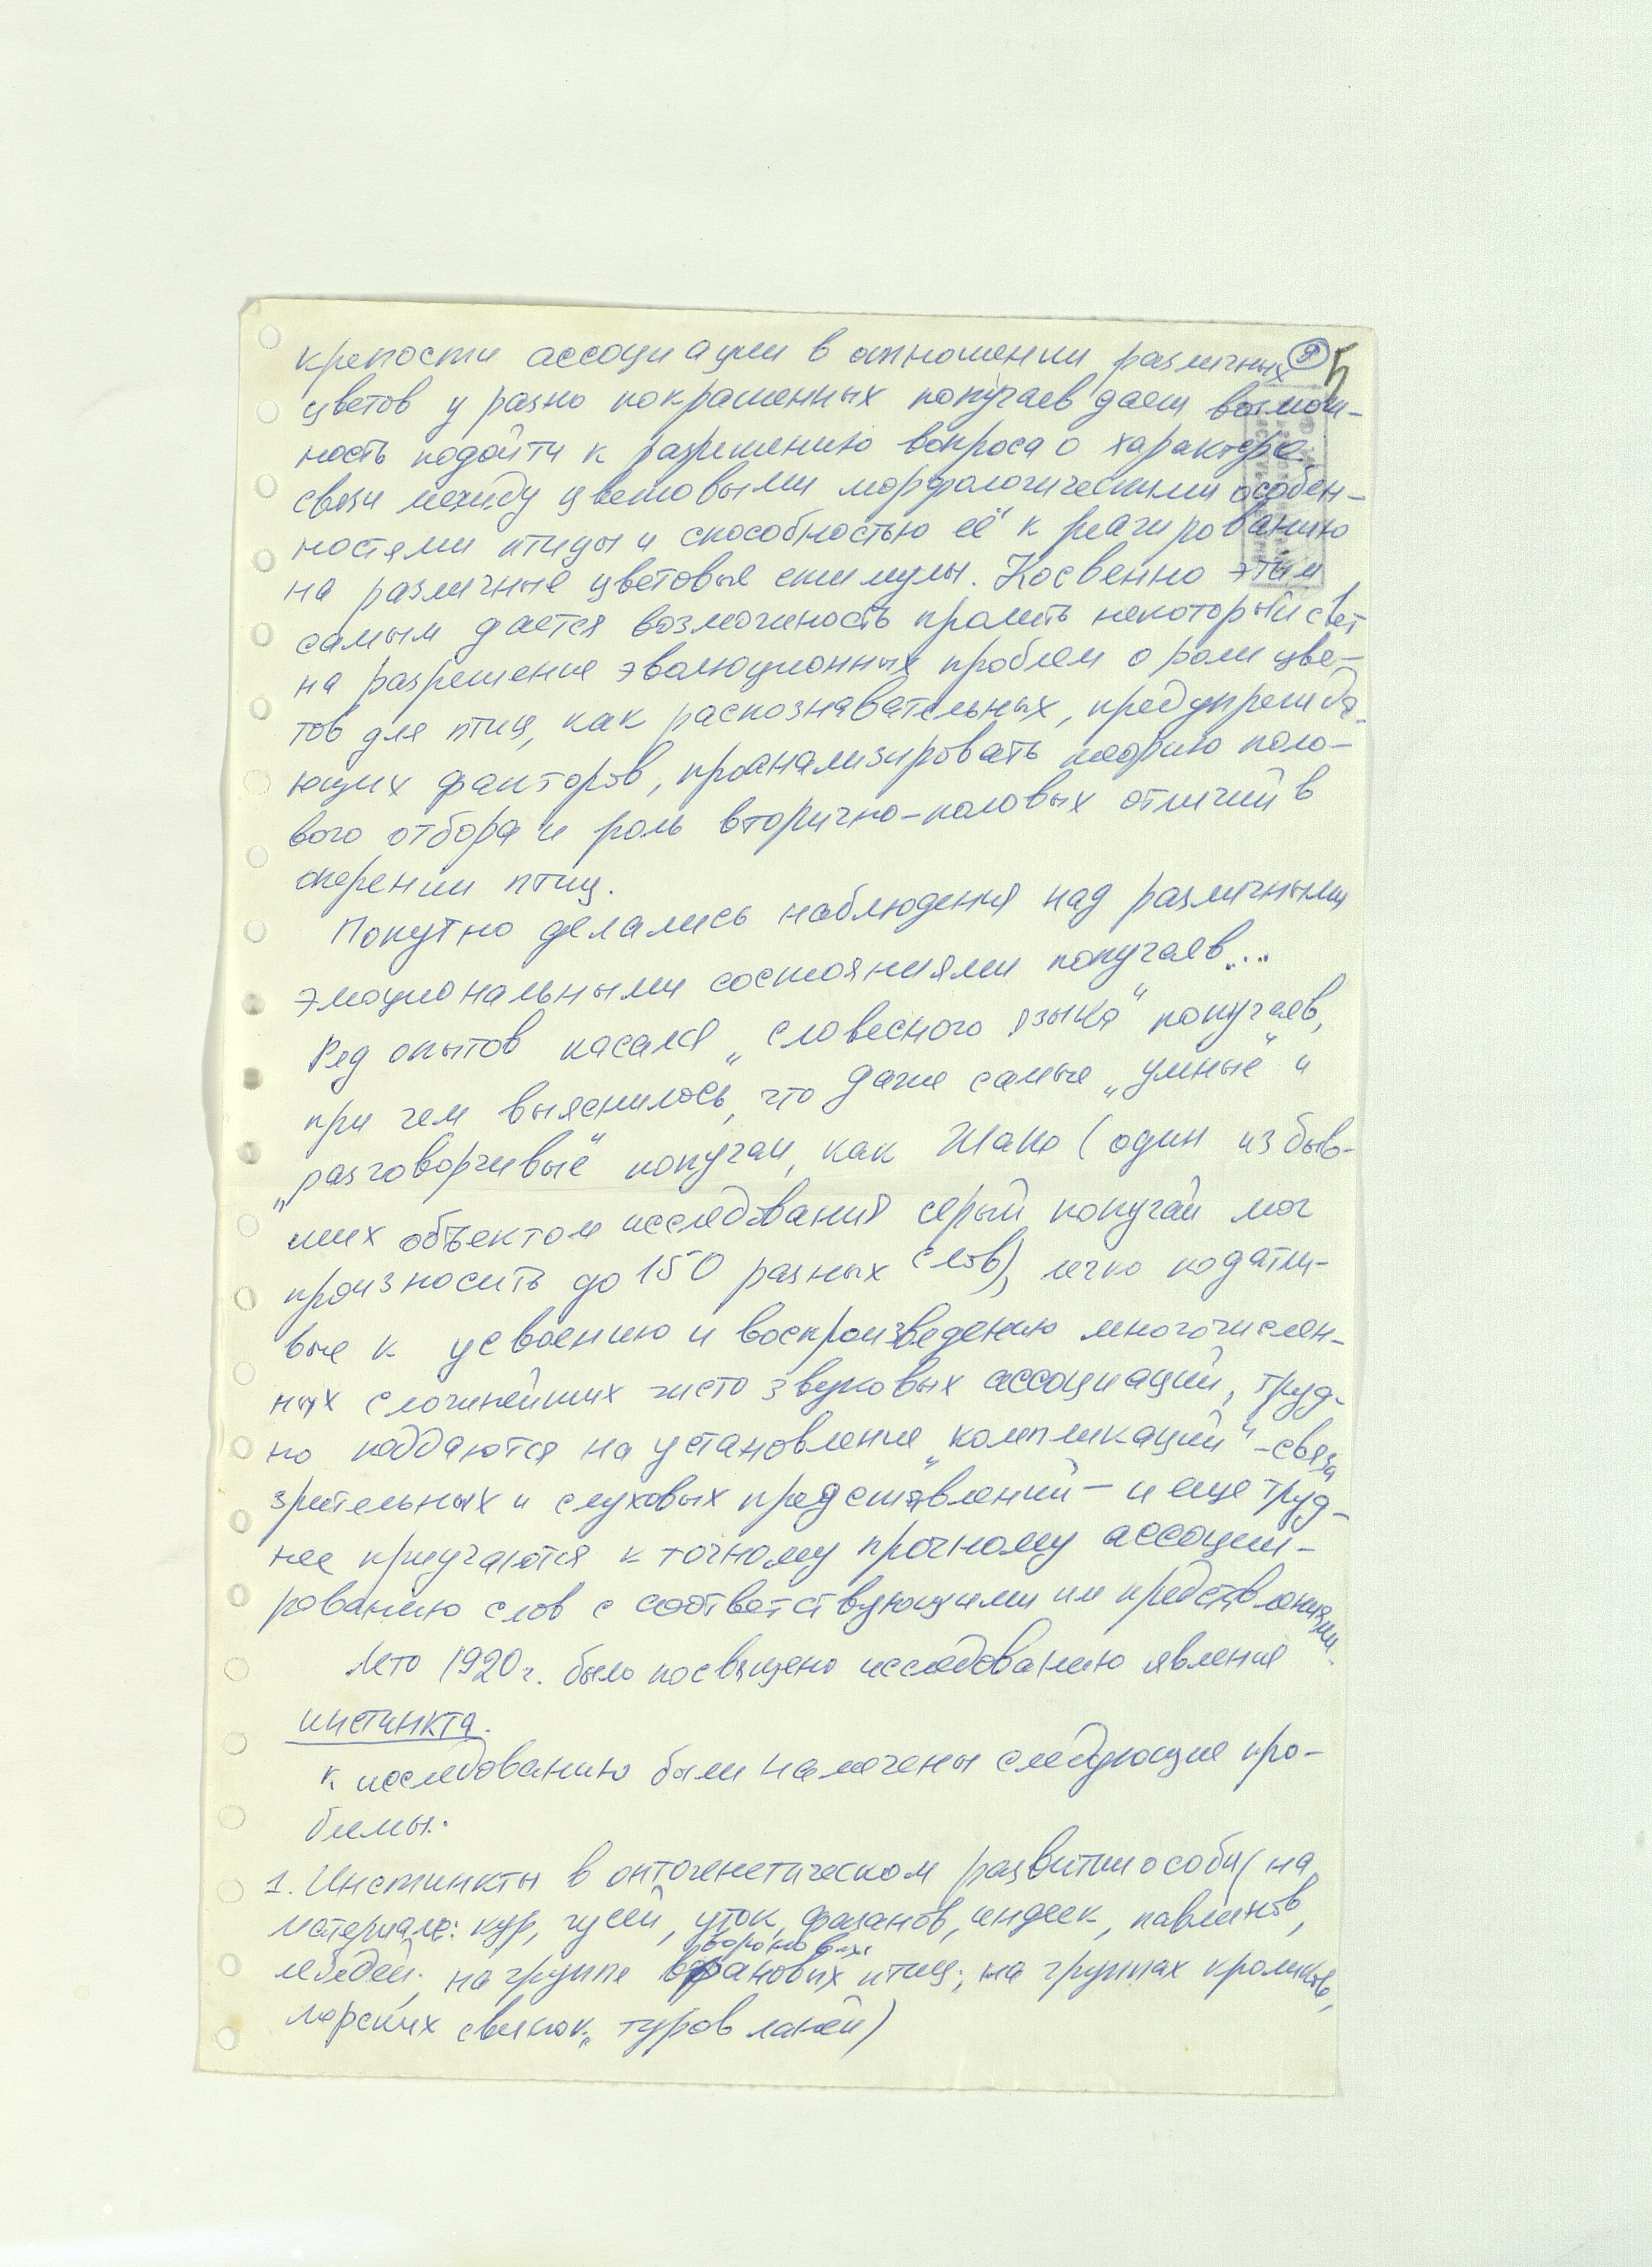 крепости ассоциации в отношении различных ⑨ 5
цветов у разно покрашенных попугаев дает возмож-
ность подойти к разрешению вопроса о характере
связи между цветовыми морфологическими особен-
ностями птицы и способностью её к реагированию
на различные цветовые стимулы. Косвенно этим
самым дается возможность пролить некоторый свет
на разрешение эволюционных проблем о роли цве-
тов для птиц, как распознавательных, предупрежда-
ющих факторов, проанализировать теорию поло-
вого отбора и роль вторично-половых отличий в
оперении птиц.
Попутно делались наблюдения над различными
эмоциональными состояниями попугаев...
Ряд опытов касался „словесного языка“ попугаев,
при чем выяснилось, что даже самые „умные“ и
„разговорчивые“ попугаи, как Жако (один из быв-
ших объектом исследования серый попугай мог
произносить до 150 разных слов), легко податли-
вые к усвоению и воспроизведению многочислен-
ных сложнейших чисто звуковых ассоциаций, труд-
но поддаются на установление „компликаций“ - связи
зрительных и слуховых представлений - и еще труд-
нее приучаются к точному прочному ассоции-
рованию слов с соответствующими им представлениями.
Лето 1920 г. было посвящено исследованию явления
инстинкта.
К исследованию были намечены следующие про-
блемы:
1. Инстинкты в онтогенетическом развитии особи (на
материале: кур, гусей, уток, фазанов, индеек, павлинов,
вороновых
лебедей; на группе врановых птиц; на группах кроликов,
морских свинок, туров ланей)